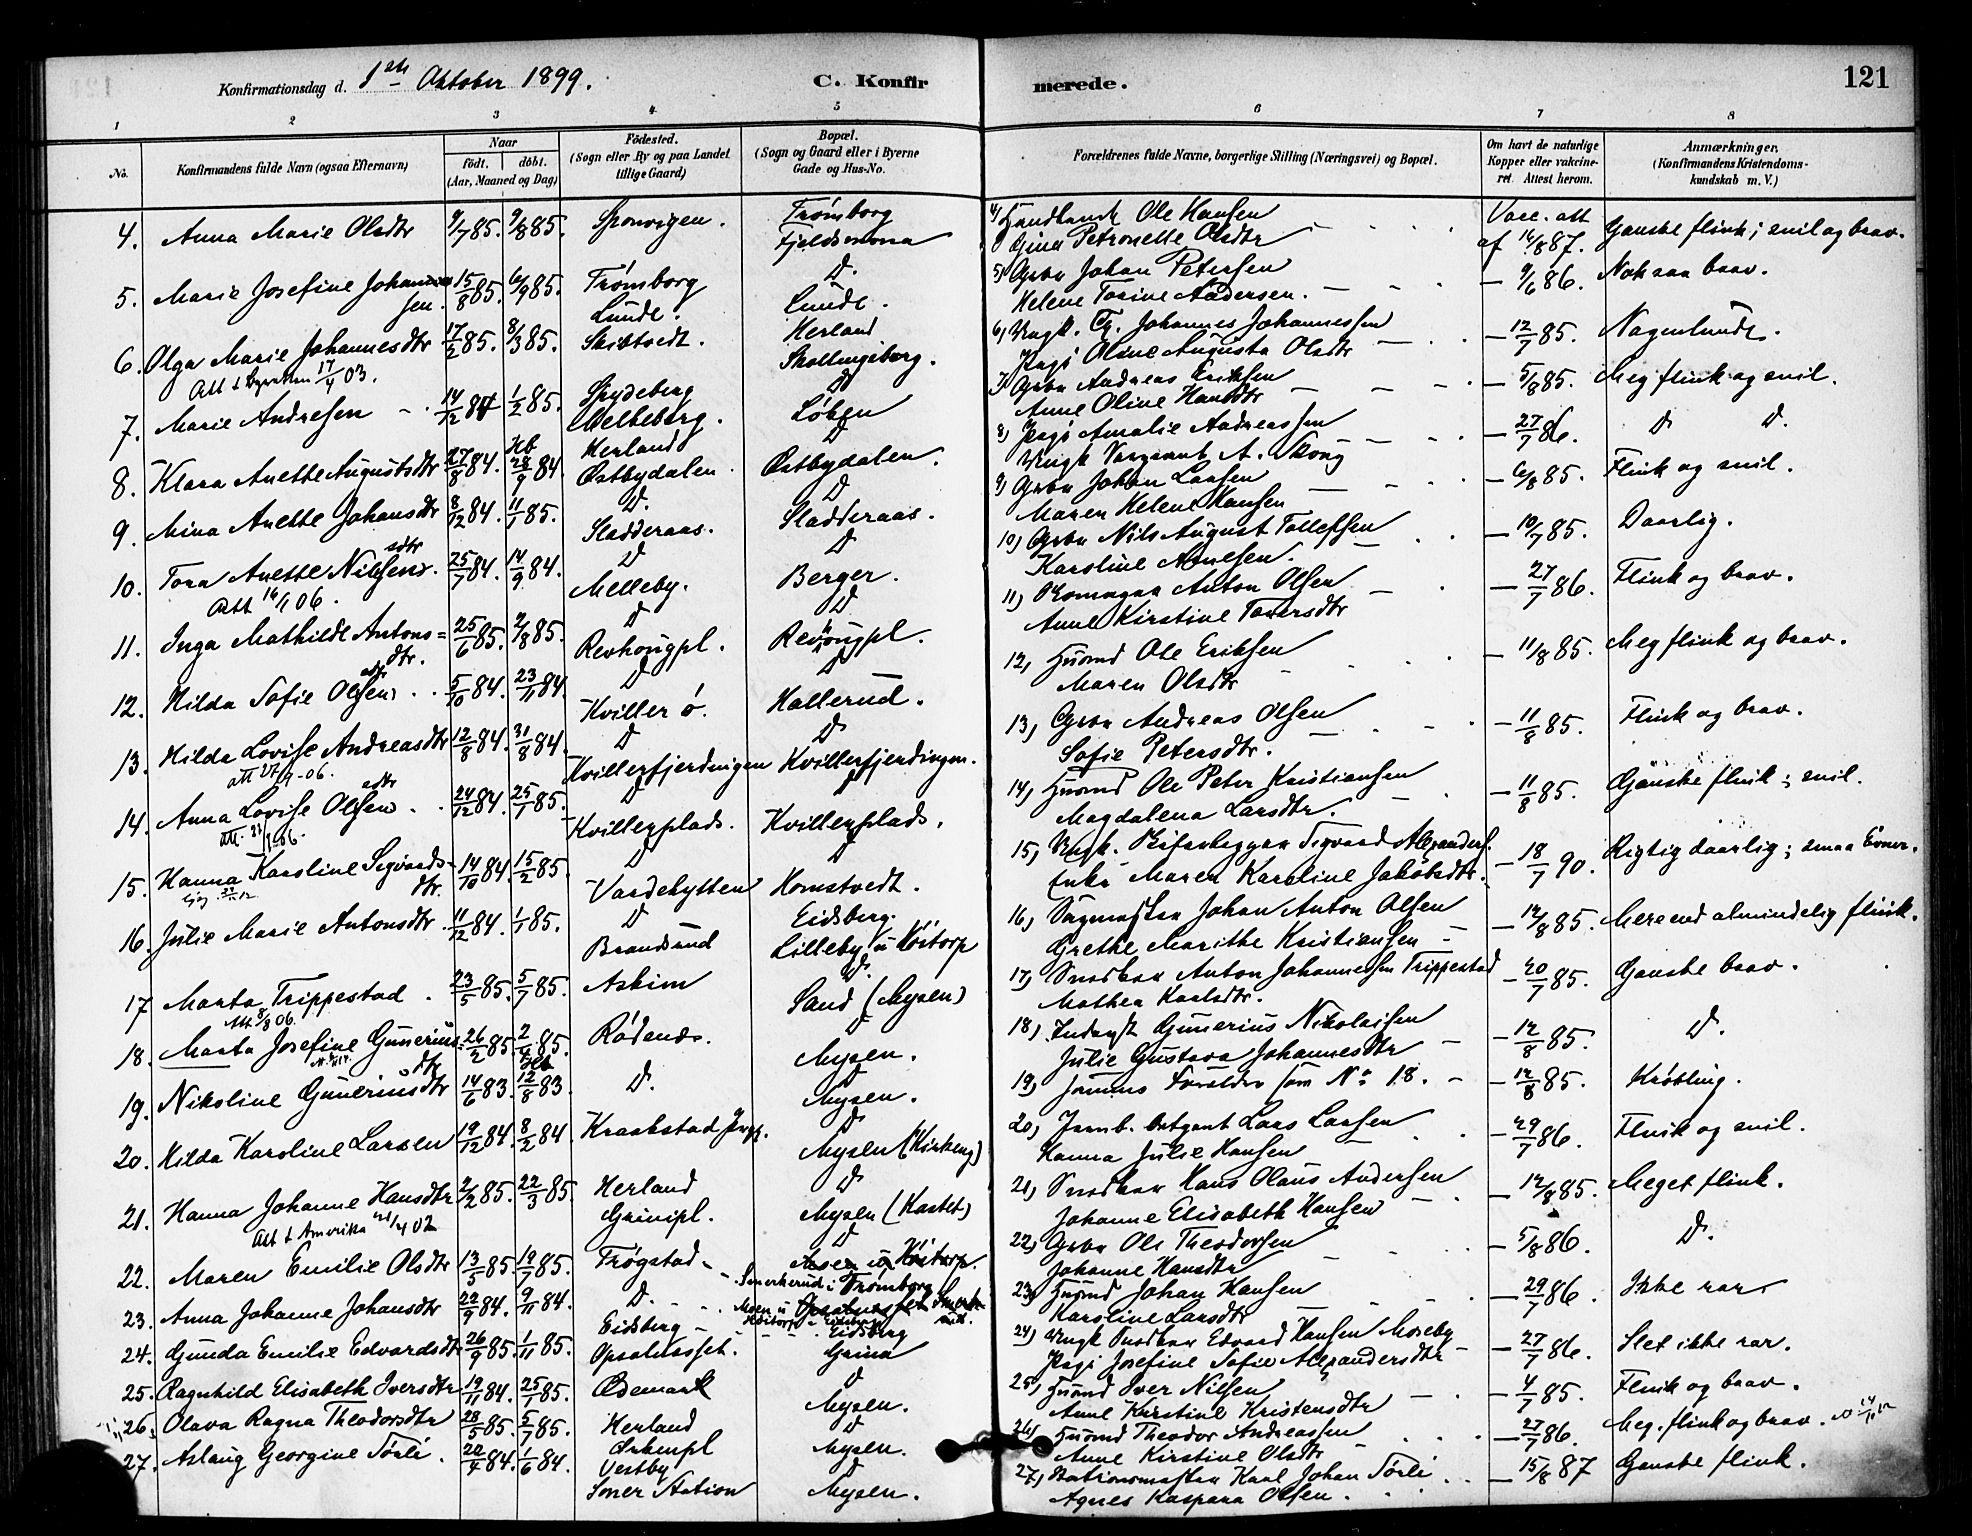 Konfirmationsdag d. 1ste Oktober 1899.
C. Konfir
merede.
121
1 2 3 4 5 6 7 8
No.
Konfirmandens fulde Navn (ogsaa Efternavn)
Naar
födt. döbt.
(Aar, Maaned og Dag)
Födested.
(Sogn eller By og paa Landet
tillige Gaard)
Bopæl.
(Sogn og Gaard eller i Byerne
Gade og Hus-No.
Forældrenes fulde Navne, borgerlige Stilling (Næringsvei) og Bopæl.
Om havt de naturlige
Kopper eller vakcine-
ret. Attest herom.
Anmærkninger.
(Konfirmandens Kristendoms-
kundskab m. V.)
4. Anna Marie Olsdtr 9/7 85. 9/8 85. Sponvigen. Trømborg
Fjeldsmona
4) Ole Hansen
Gina Petronelle Olsdtr
Vacc. att
af 16/8 87. Ganske flink; snil og brav.
5. Marie Josefine Johannes
sen. 15/8 85. 6/9 85. Trømborg
Lunde. D.
Lunde.
5) Grbr Johan Petersen
Helene Torine Andersen. — 9/6 86. Nok saa brav.
6. Olga Marie Johannesdtr 17/2 85. 8/3 85. Skiptvedt. Herland
Skollingsborg.
17/4 03.
6) Ungk. Johannes Johannessen
Pagi Oline Augusta Olsdtr — 12/7 85. Nogenlunde.
7. Marie Andresen 14/12 84 1/2 85. Spydeberg
Melbeberg. D
Løken
7) Grbr Andreas Eriksen
Anne Oline Hansdtr — 5/8 85. Meg flink og snil.
8. Klara Anette Augustsdtr 27/8 84. Hb 28/9 84 Herland
Østbydalen. D
Østbydalen.
8) Pagi Amalie Andreassen
Ungk A. Skoug — 27/7 86. D D.
9. Mina Anette Johansdtr 8/12 84. 11/1 85. D.
Sladderaas. D
Sladderaas.
9) Grbr Johan Larsen
Maren Helene Hansen — 6/8 85. Flink og snil.
10. Tora Anette Nilsens. sdtr 25/7 84. 14/9 84. D
Melleby. D
Berger.
Att 16/1 06.
10) Grbr Nils August Tollefsen
Karoline Arnesen. — 10/7 85. Daarlig.
11. Inga Mathilde Antons=
dtr. 25/6 85. 2/8 85. D
Revhougpl. D
Revhougpl.
11) Anton Olsen
Anne Kirstine Torersdtr — 27/7 86. Flink og brav.
12. Hilda Sofie Olsen 5/10 84. 23/11 84. D
Kviller ø. D
Hallerud.
12) Husmd Ole Eriksen
Maren Olsdtr — 11/8 85. Meg flink og brav.
13. Hilda Lovise Andreasdtr 12/8 84. 31/8 84. D
Kvillerfjerdingen D
Kvillerfjerdingen.
13) Grbr Andreas Olsen
Sofie Petersdtr. — 11/8 85. Flink og brav.
14. Anna Lovise Olsen 24/12 84. 25/1 85. D
Kvillerplads. D
Kvillerplads.
14) Husmd Ole Peter Kristiansen
Magdalena Larsdtr. — 11/8 85. Ganske flink; snil.
15. Hanna Karoline Sigvards-
dtr. 14/10 84. 15/2 85. D
Vardehytten D
Homstvedt.
15) Ungk. Sigvard Alexanders.
Enke Maren Karoline Jakobsdtr. — 18/7 90. Rigtig daarlig; smaa Evner.
16. Julie Marie Antonsdtr 11/12 84. 1/1 85. D
Brandsrud Eidsberg.
Lilleby u Höitorp
16) Sagmester Johan Anton Olsen
Grethe Marithe Kristiansen — 12/8 85. Mere end almindelig flink.
17 Marta Trippestad. 23/5 85. 5/7 85. Askim D.
Sand (Mysen)
Att 8/8 06.
17) Snedker Anton Johannessen Trippestad
Mathea Karlsdtr. — 20/7 85. Ganske brav.
18. Marta Josefine Gunerius-
dtr 26/2 85. Rödenæs. D
Mysen.
18) Gunerius Nikolaisen
Julie Gustava Johannesdtr — 12/8 85. D.
19. Nikoline Guneriusdtr 14/6 83. 12/8 83. D. D
Mysen.
19) Samme Forældre som No 18. — 12/8 85. Krøbling.
20. Hilda Karoline Larsen 19/12 84. 8/2 84. Kraakstad D
Mysen (Kirkeng)
20) Jernb. betjent Lars Larsen
Hanna Julie Hansen — 29/7 86. Flink og snil.
21. Hanna Johanne Hansdtr 2/2 85. 22/3 85. Herland
Grinipl. D
Mysen (Kastet)
Att t Amerika 21/4 02
21) Snedker Hans Olaus Andersen
Johanne Elisabeth Hansen — 12/8 85. Meget flink.
22. Maren Emilie Olsdtr 13/5 85. 19/7 85. Trøgstad D
Moen u Höitorp.
22) Grbr Ole Theodorsen
Johanne Hansdtr — 5/8 86. D.
23. Anna Johanne Johansdtr 22/9 84. 9/11 84. D. Smerkerud i Trømborg
23) Husmd Johan Hansen
Karoline Larsdtr — 29/7 86. Ikke rar
24. Gunda Emilie Edvardsdtr 26/9 85. 1/11 85. Eidsberg
Opsalunsset. Eidsberg
Grina
24) Ungk Snedker Edvard Hansen Moseby
Pagi Josefine Sofie Alexandersdtr — 27/7 86. Slet ikke rar.
25. Ragnhild Elisabeth Iversdtr 19/11 84. 25/1 85. Ødemark D
Mysen.
25) Husmd Iver Nilsen
Anne Kirstine Kristensdtr — 4/7 85. Flink og brav.
26. Olava Ragna Theodorsdtr 28/5 85. 5/7 85. Herland
Ørkenpl D
Mysen.
26) Husmd Theodor Andreassen
Anne Kirstine Olsdtr — 27/7 86. Meg. flink og brav.
27. Aslaug Georgine Sörli. 22/4 84. 1/6 84. Vestby
Soner Station D
Mysen.
27) Stationsmester Karl Johan Sörli
Agnes Kaspara Olsen. — 15/8 87 Ganske flink.